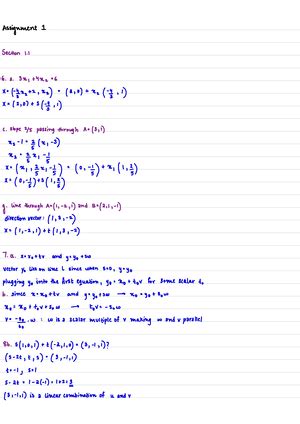 Assignment 1
Section 1.1
6. a. 3x₁ + 4x₂ = 6
x = (-4/3 x₂ + 2, x₂) = (2, 0) + x₂ (-4/3, 1)
x = (2, 0) + t (-4/3, 1)
c. slope 2/5 passing through A = (3, 1)
x₂ - 1 = 2/5 (x₁ - 3)
x₂ = 2/5 x₁ - 1/5
x = (x₁, 2/5 x₁ - 1/5) = (0, -1/5) + x₁ (1, 2/5)
x = (0, -1/5) + t (1, 2/5)
g. line through A = (1, -2, 1) and B = (2, 1, -1)
direction vector: (1, 3, -2)
x = (1, -2, 1) + t (1, 3, -2)
7. a. x = x₀ + tv and y = y₀ + sw
vector y₀ lies on line L since when s=0, y = y₀
plugging y₀ into the first equation, y₀ = x₀ + t₀v for some scalar t₀
b. since x = x₀ + tv and y = y₀ + sw → x₀ = y₀ + s₀w
x₀ = x₀ + t₀v + s₀w → t₀v = -s₀w
v = -s₀/t₀ · w : w is a scalar multiple of v making w and v parallel
8b. s(1, 0, 1) + t(-2, 1, 0) = (3, -1, 1)?
(s - 2t, t, s) = (3, -1, 1)
t = -1, s = 1
s - 2t = 1 - 2(-1) = 1 + 2 = 3
(3, -1, 1) is a linear combination of u and v